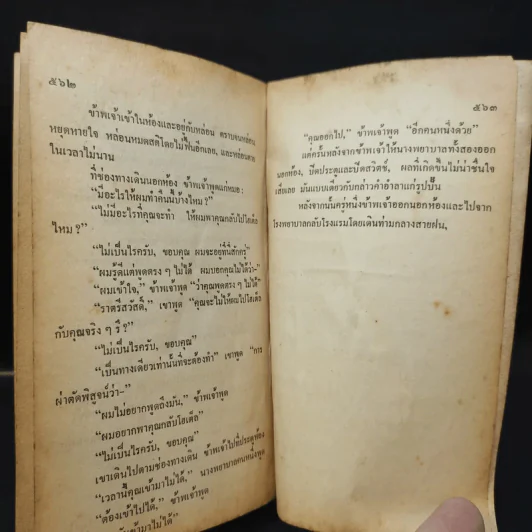 ๕๖๒
ข้าพเจ้าเข้าในห้องและอยู่กับหล่อน ตราบจนหล่อน
หยุดหายใจ หล่อนหมดสติโดยไม่ฟื้นอีกเลย, และหล่อนตาย
ในเวลาไม่นาน
ที่ช่องทางเดินนอกห้อง ข้าพเจ้าพูดแก่หมอ:
“มีอะไรให้ผมทำคืนนี้บ้างไหม?”
“ไม่มีอะไรที่คุณจะทำ ให้ผมพาคุณกลับไปโฮเต็ล
ไหม?”
“ไม่เป็นไรครับ, ขอบคุณ ผมจะอยู่ที่นี่สักครู่”
“ผมรู้ดีแต่พูดตรง ๆ ไม่ได้ ผมบอกคุณไม่ได้ว่า–”
“ผมเข้าใจ,” ข้าพเจ้าพูด “ว่าคุณพูดตรง ๆ ไม่ได้”
“ราตรีสวัสดิ์,” เขาพูด “คุณจะไม่ให้ผมไปโฮเต็ล
กับคุณจริง ๆ รึ?”
“ไม่เป็นไรครับ, ขอบคุณ”
“เป็นทางเดียวเท่านั้นที่จะต้องทำ” เขาพูด “การ
ผ่าตัดพิสูจน์ว่า–”
“ผมไม่อยากพูดถึงมัน,” ข้าพเจ้าพูด
“ผมอยากพาคุณกลับโฮเต็ล”
“ไม่เป็นไรครับ, ขอบคุณ”
เขาเดินไปตามช่องทางเดิน ข้าพเจ้าไปที่ประตูห้อง
“เวลานี้คุณเข้ามาไม่ได้,” นางพยาบาลคนหนึ่งพูด
“ต้องเข้าไปได้,” ข้าพเจ้าพูด
เข้ามาไม่ได้”
๕๖๓
“คุณออกไป,” ข้าพเจ้าพูด “อีกคนหนึ่งด้วย”
แต่ครั้นหลังจากข้าพเจ้าให้นางพยาบาลทั้งสองออก
นอกห้อง, ปิดประตูและปิดสวิตช์, ผลที่เกิดขึ้นไม่น่าชื่นใจ
เสียเลย มันแบบเดียวกับกล่าวคำอำลาแก่รูปปั้น
หลังจากนั้นครู่หนึ่งข้าพเจ้าออกนอกห้องและไปจาก
โรงพยาบาลกลับโรงแรมโดยเดินท่ามกลางสายฝน,